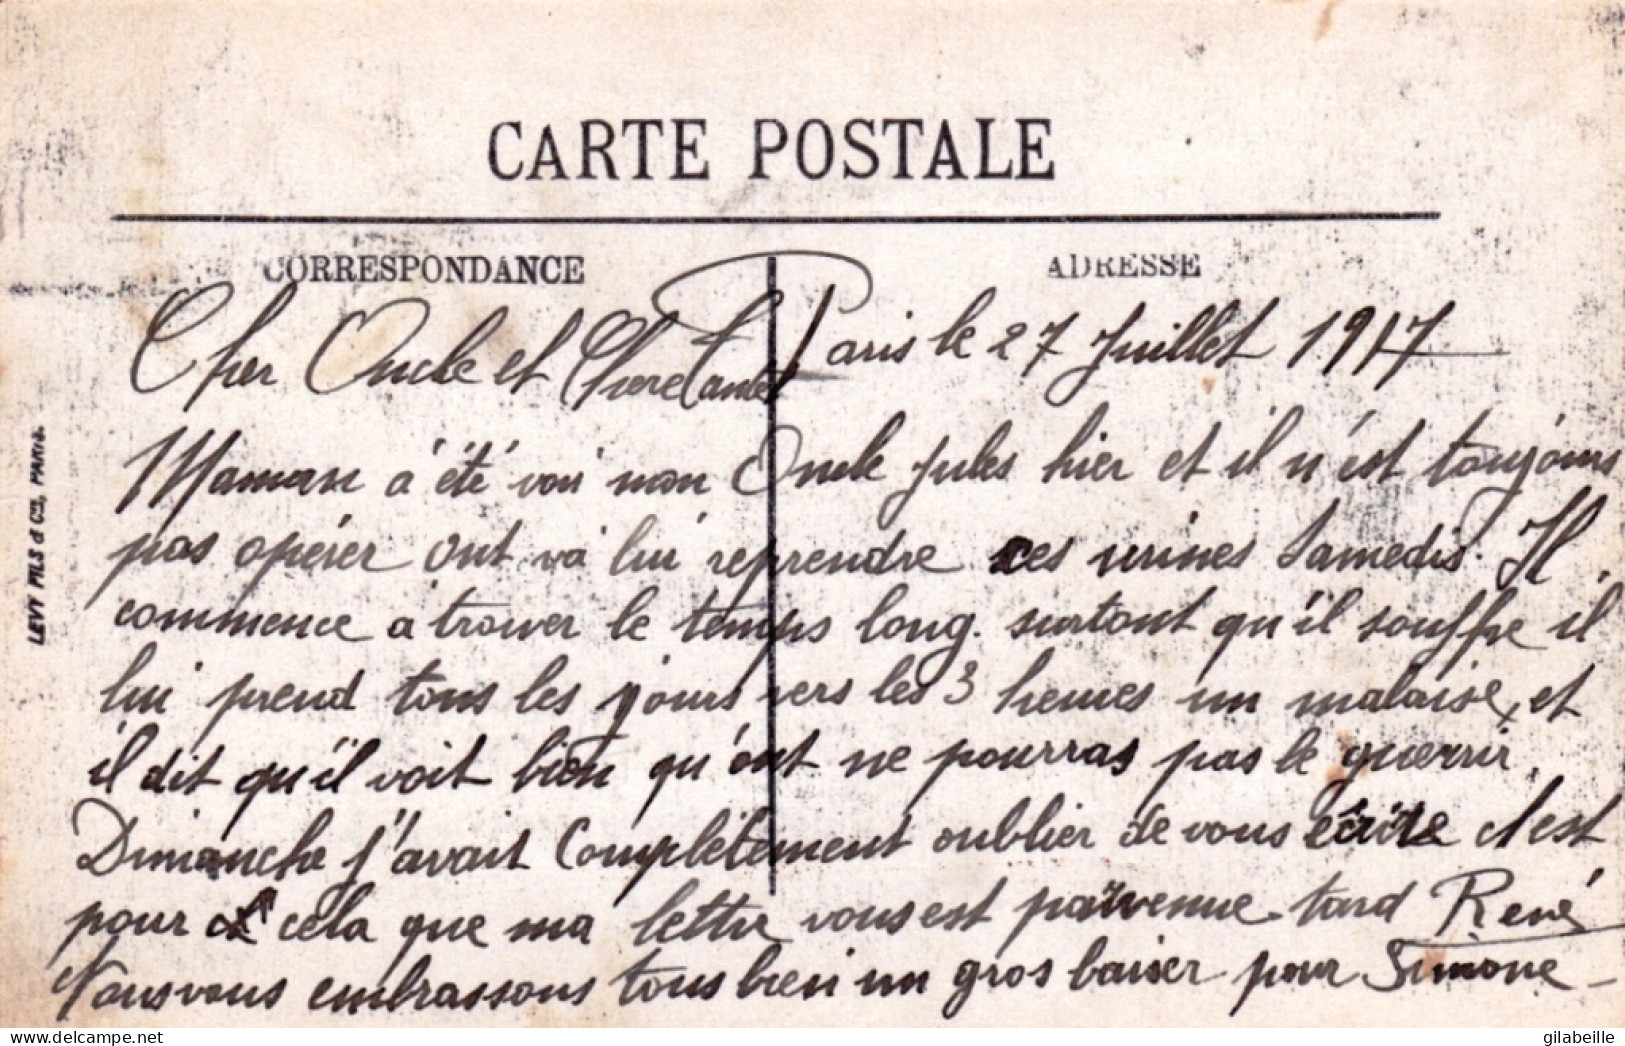 CARTE POSTALE
CORRESPONDANCE
ADRESSE
Paris le 27 Juillet 1917
Cher Oncle et Chere Tante
Maman á été voir mon Oncle Jules hier et il n'est toujours
pas opérer ont va lui reprendre ces urines Samedis. Il
commence a trouver le temps long. surtout qu'il souffre il
lui prend tous les jours vers les 3 heures un malaise, et
il dit qu'il voit bien qu'ont ne pourras pas le guerrir.
Dimanche j'avait Complétement oublier de vous écrire c'est
pour cela que ma lettre vous est parvenue tard René
Nous vous embrassons tous bien un gros baiser pour Simone
LEVY FILS & Cie, PARIS.
delcampe.net
gilabeille